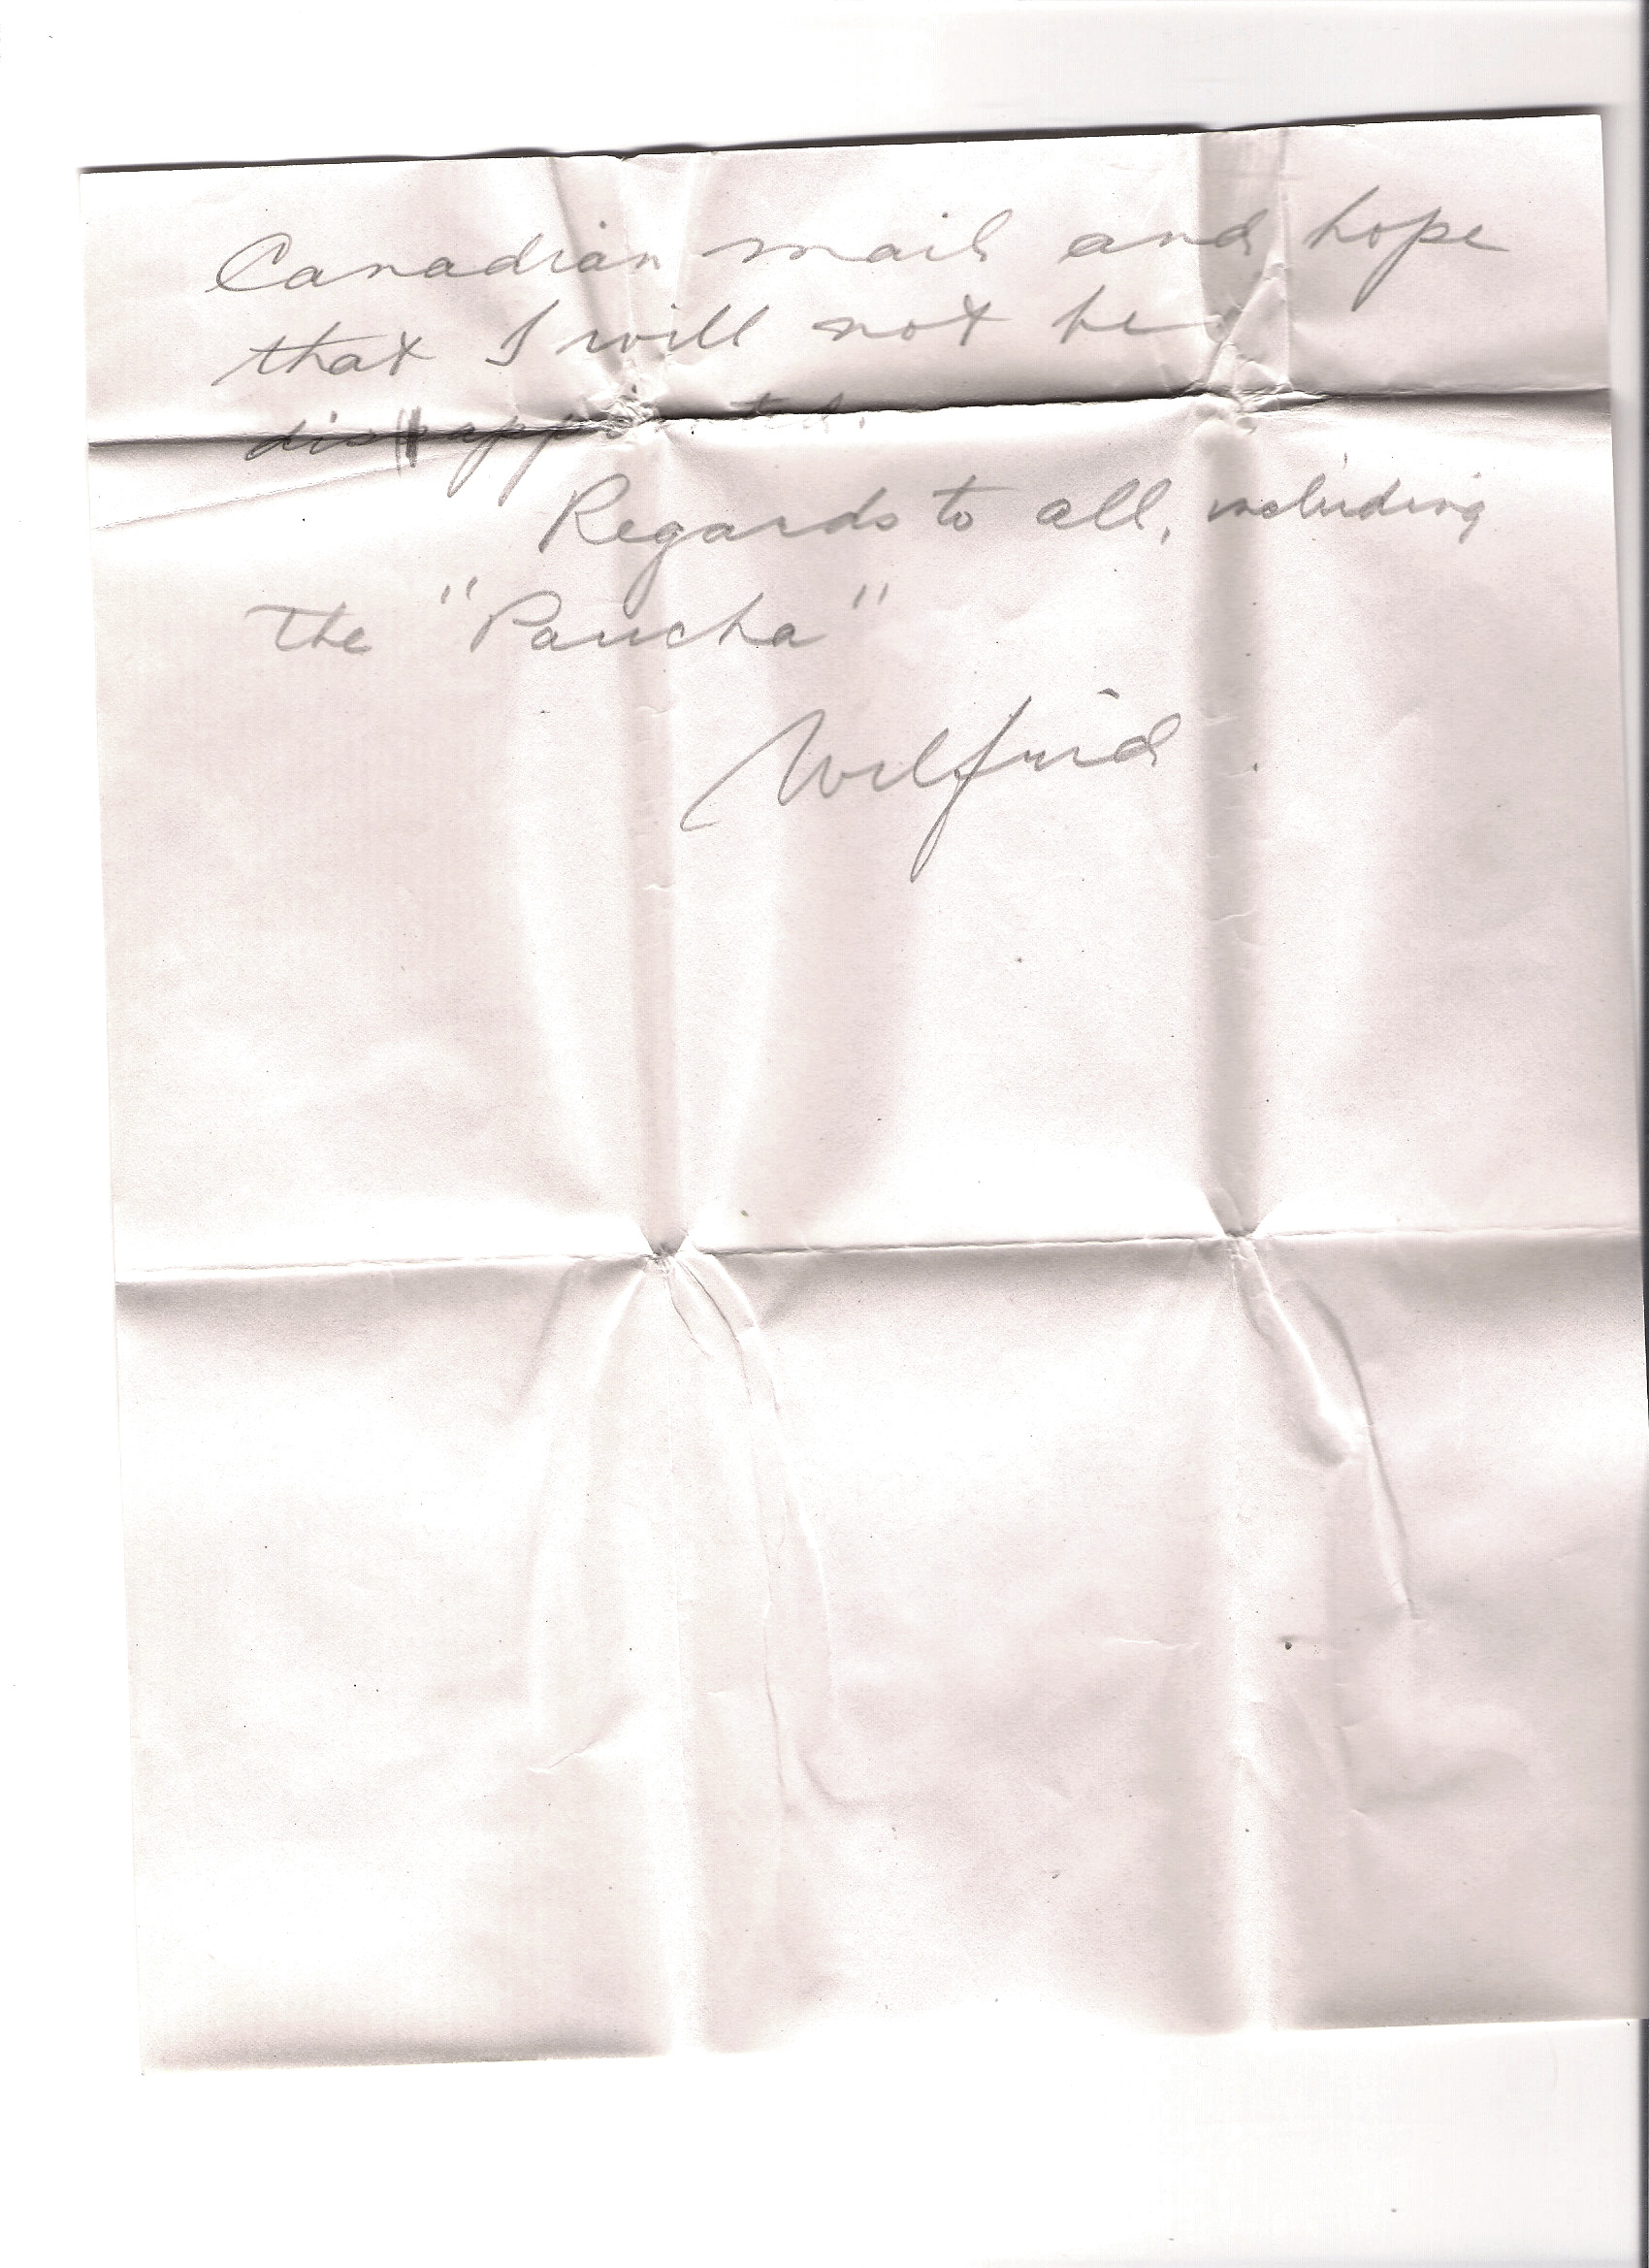 Canadian mail and hope
that I will not be
disappointed.
Regards to all, including
the "Paucha"
Wilfrid